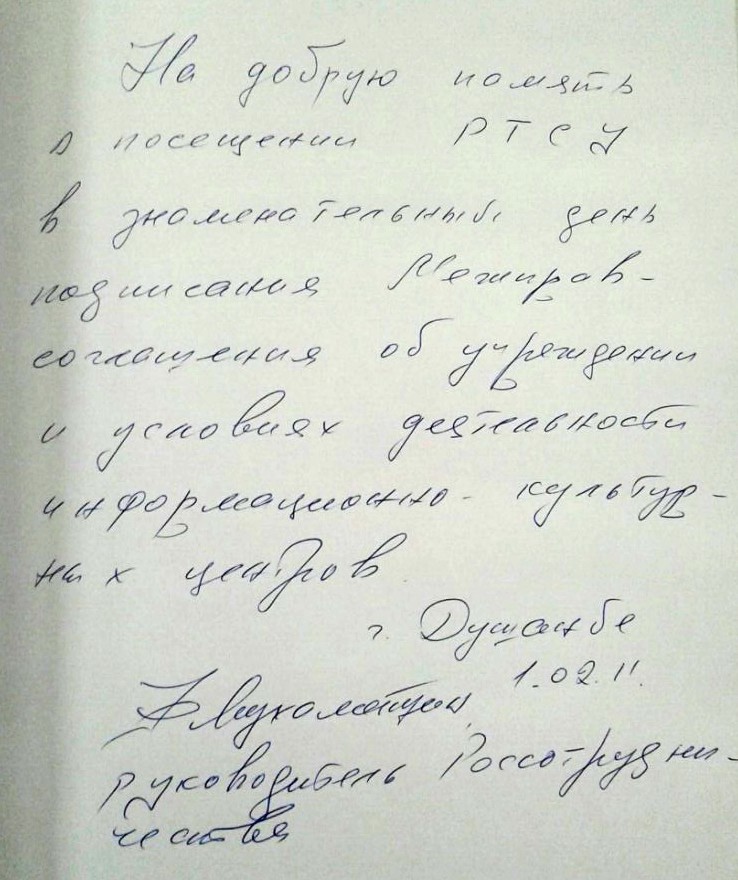 На добрую память
о посещении РТСУ
в знаменательный день
подписания Межправ-
соглашения об учреждении
и условиях деятельности
информационно-культур-
ных центров
г. Душанбе
1.02.11.
руководитель Россотрудни-
чества